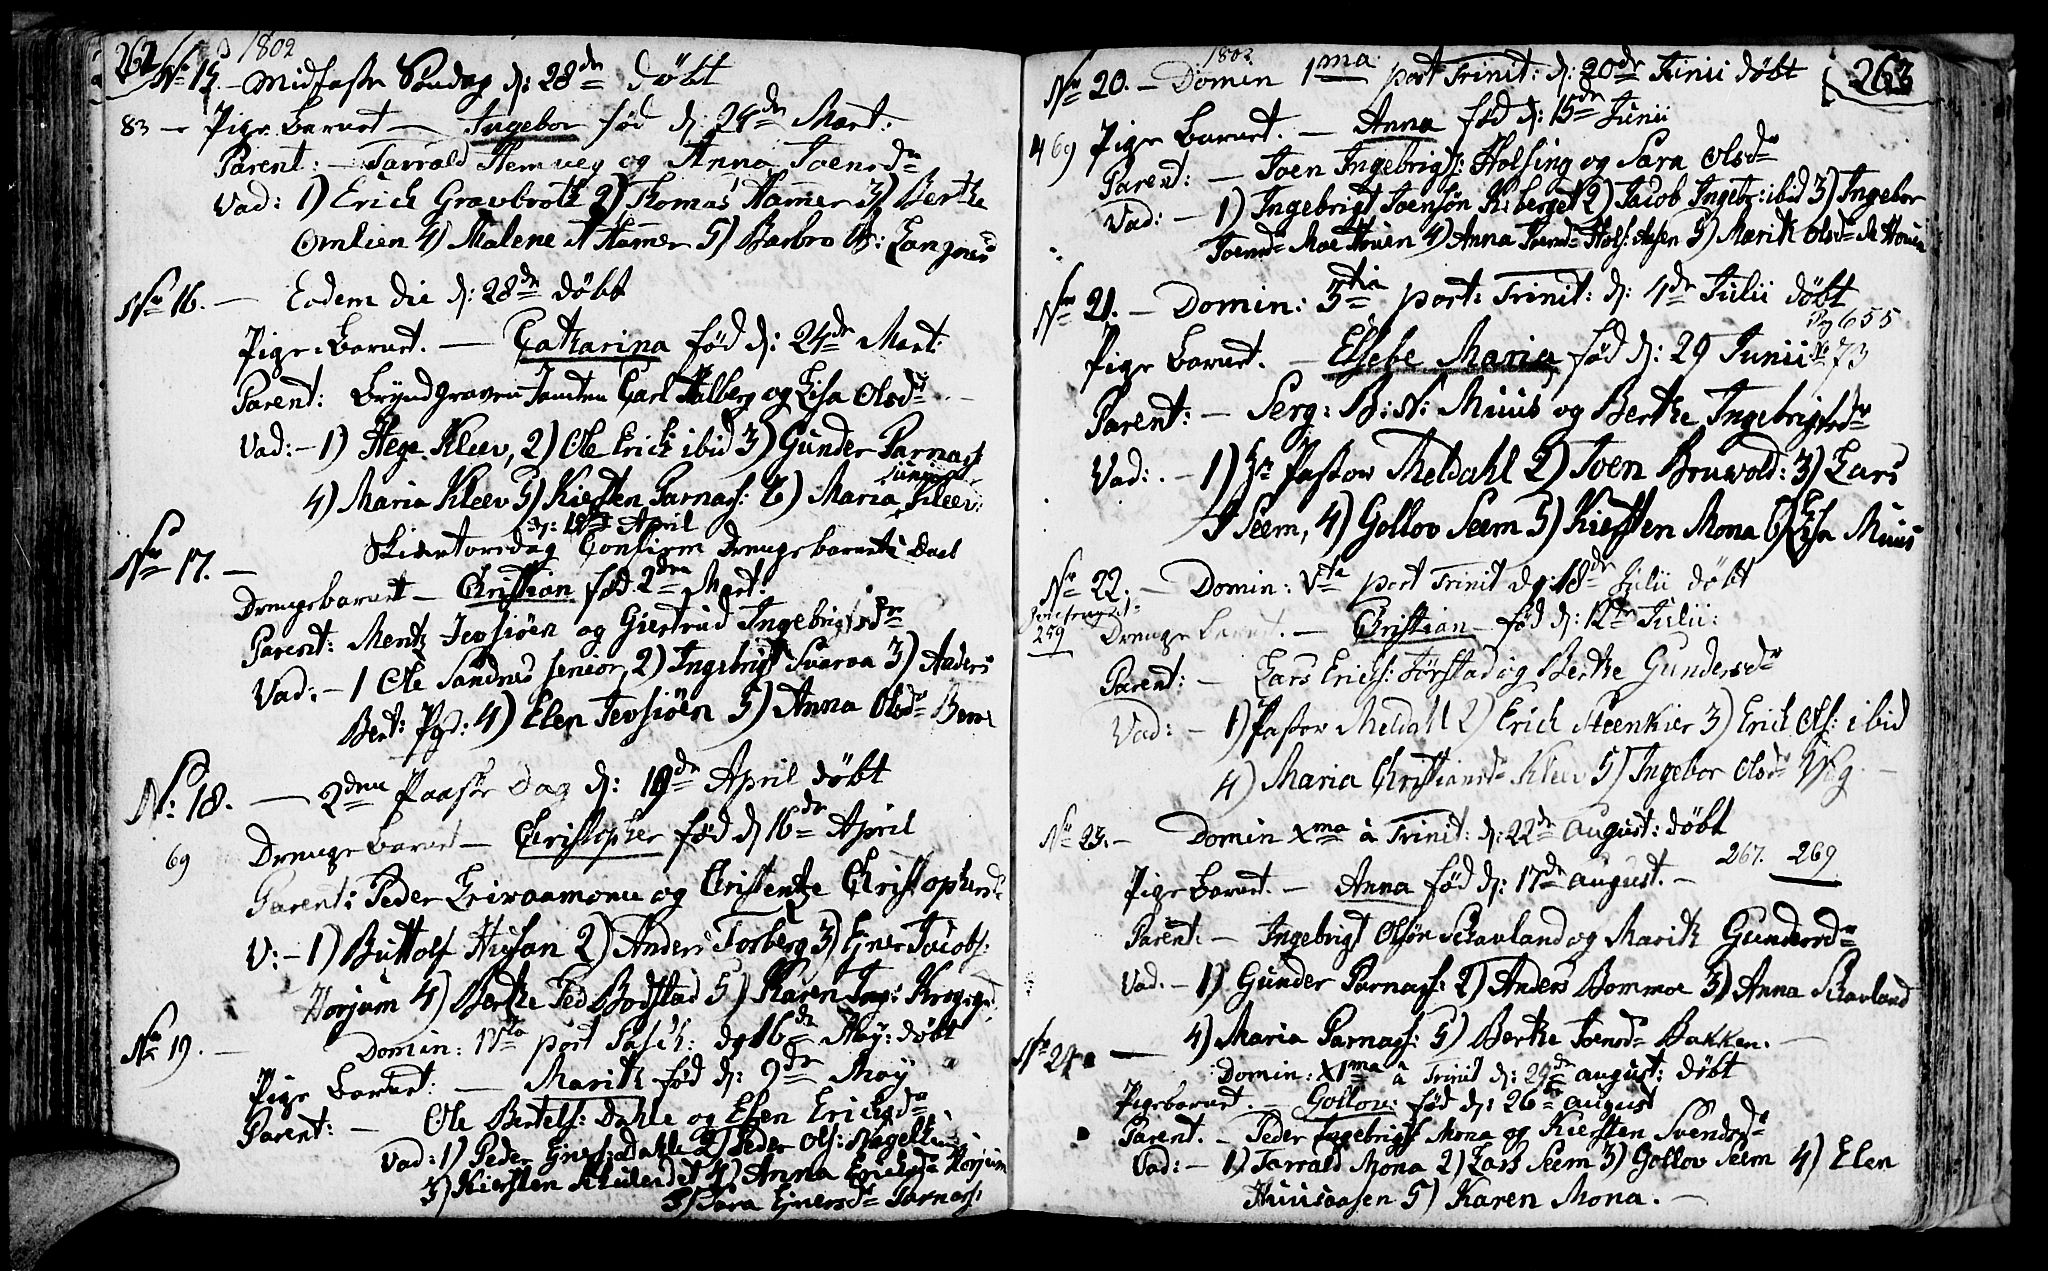 262
1802
No 15. – Midfaste Søndag d: 28de døbt
83 – Pige Barnet – Ingebor fød d: 24de Mart:
Parent: – Tarrald Hemveg og Anna Joensdr
Vad: 1) Erich Gravbrott 2) Thomas Hammer 3) Berthe
Omlien 4) Malene Hammer 5) Barbro
No 16. – Eodem die d: 28de døbt
Pige Barnet. – Catharina fød d: 24de Mart:
Parent: Carl Halberg og Lisa Olsdr
Vad: – 1) Hege Kleev, 2) Ole Erich ibid 3) Gunder Parnass
Junior
4) Maria Kleev 5) Kirsten Parnass: 6) Maria Kleev:
April
No 17. – Skiertorsdag Confirm Drengebarnets Daab
Drengebarnet – Christian fød 2den Mart:
Parent: Mentz Jevsiöen og Giertrud Ingebrigtsdr
Vad: – 1 Ole Sandnes senior, 2) Ingebrigt Svarva 3) Anders
Bert: 4) Elen Jevsiöen 5) Anna Olsdr
No 18. – 2den Paaske Dag d: 19de April døbt
69 Drenge Barnet – Christopher fød d 16de April
Parent: Peder og Christentze Christophersdr
V: – 1) Buttolf Hiisan 2) Anders Forberg 3) Einer Jacobs:
Vorjum 4) Berthe Ped Bodstad 5) Karen Ing:
No 19. – Domin: post Pasch: d 16de May: døbt
Pige Barnet: – Marith fød d: 9de May
Parent: – Ole Bertels: Dahle og Elen Erichsdr
Vad: 1) Peder Dahle 2) Peder Ols:
3) Kiersten 4) Anna Erichsdr Vorjum
5) Sara Einersdr Parnass:
1802
263
No 20. – Domin 1ma post Trinit: d: 20de Junii døbt
469 Pige Barnet. – Anna fød d: 15de Junii
Parent: – Joen Ingebrigts: Holsing og Sara Olsdr
Vad: – 1) Ingebrigt Joensön 2) Jacob Ingebr: ibid 3) Ingebor
Joensdr Moe Houen 4) Anna Joensdr 5) Marith Olsdr
No 21. – Domin: 3tia post: Trinit: d: 4de Julii døbt
655
Pige Barnet. – Elsebe Maria fød d: 29 Junii:
No 73
Parent: – Serg: B: N: Muus og Berthe Ingebrigtsdr
Vad: – 1) Hr Pastor Meldahl 2) Joen Bruvold: 3) Lars
Seem, 4) Gollov Seem 5) Kiersten Mona 6) Lisa Muus
No 22. – Domin: Vta post Trinit d: 18de Julii døbt
259 Drenge Barnet. – Christian fød d: 12te Julii:
Parent: – Lars Erichs: Förstad og Berthe Gundersdr
Vad: – 1) Pastor Meldahl 2) Erich Steenkier 3) Erich Ols: ibid
4) Maria Christiansdr Kleev 5) Ingebor Olsdr Wiig –
No 23. – Domin Xma à Trinit: d: 22de August: døbt
267. 269
Pige Barnet. – Anna fød d: 17de August. –
Parent. – Ingebrigt Olsön Schavland og Marith Gundersdr
Vad. – 1) Gunder Parnass: 2) Anders Bommoe 3) Anna Schavland
4) Maria Parnass: 5) Berthe Joensdr Bakken. –
No 24. – Domin: XIma à Trinit d: 29de August: døbt
Pigebarnet. – Gollov: fød d: 26de August
Parent. – Peder Ingebrigts Mona og Kiersten Svendsdr
Vad: – 1) Tarrald Mona 2) Lars Seem 3) Gollov Seem 4) Elen
Huusaasen 5) Karen Mona. –